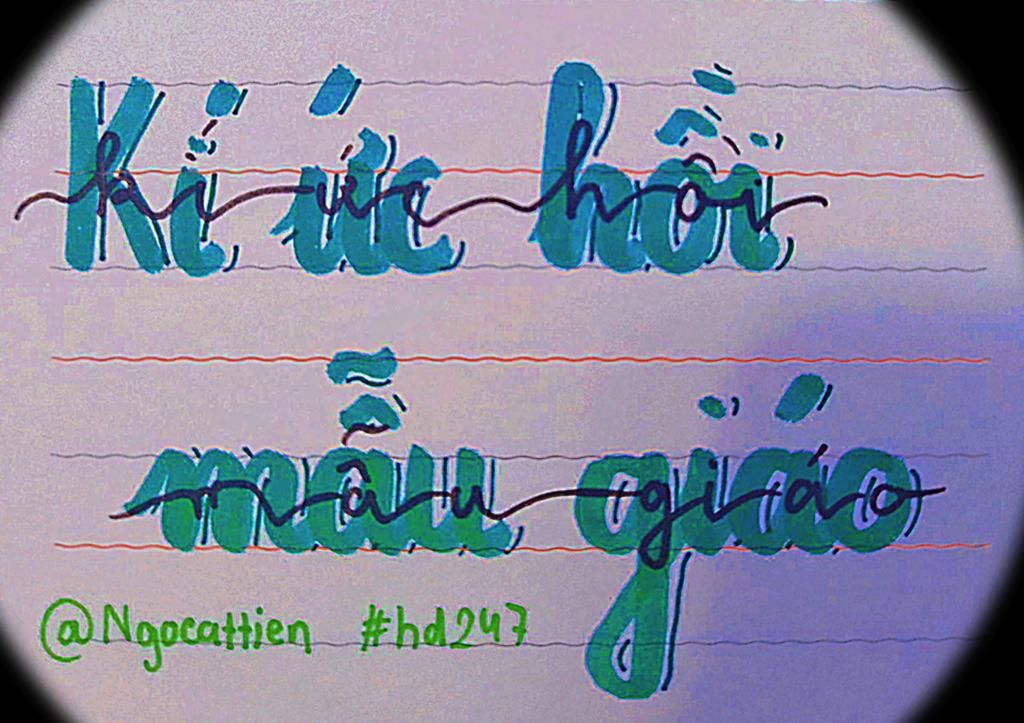 Kí ức hồi
mẫu giáo
@Ngocattien #hd247